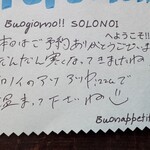 Buogiorno!! SOLONOI
へようこそ!!
本日はご予約ありがとうございま
だんだん寒くなってきましたね
ソロノイのアツアツ
温まって下さいね
Buonappetit